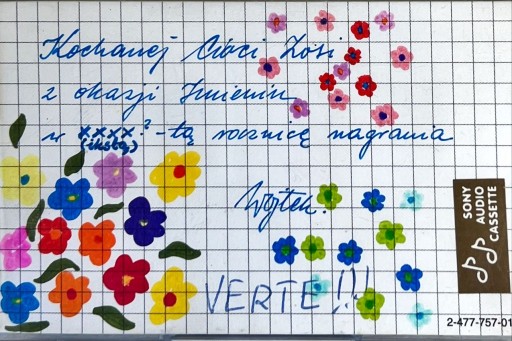 Kochanej Cioci Zosi
z okazji Imienin
w xxxx?-tą rocznicę nagrania
(ikstą)
Wojtek.
VERTE!!!
SONY
AUDIO
CASSETTE
2-477-757-01